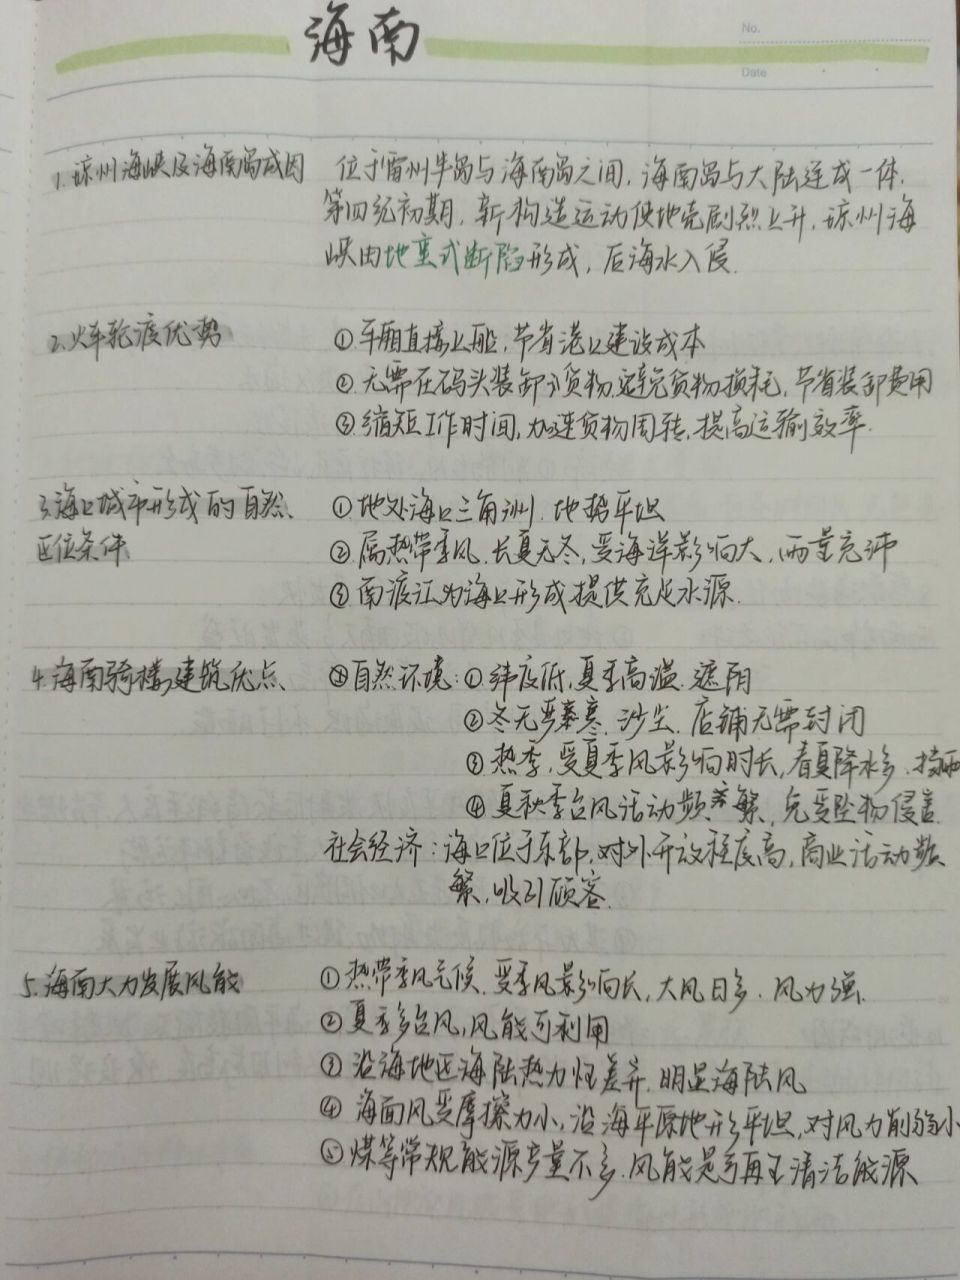 海南
No.
Date
1. 琼州海峡及海南岛成因 位于雷州半岛与海南岛之间,海南岛与大陆连成一体.
第四纪初期,新构造运动使地壳剧烈上升,琼州海
峡由地堑式断陷形成,后海水入侵.
2.火车轮渡优势 ①车厢直接上船,节省港口建设成本
②无需在码头装卸货物,避免货物损耗,节省装卸费用
③缩短工作时间,加速货物周转,提高运输效率.
3.海口城市形成的自然 ①地处海口三角洲.地势平坦
区位条件 ②属热带季风.长夏无冬,受海洋影响大,雨量充沛
③南渡江为海口形成提供充足水源.
4.海南骑楼建筑优点 自然环境:①纬度低,夏季高温.遮阴
②冬无严寒.沙尘.店铺无需封闭
③热季,受夏季风影响时长,春夏降水多.挡雨
④夏秋季台风活动频繁,免受坠物侵害.
社会经济:海口位于东部,对外开放程度高,商业活动频
繁,吸引顾客.
5.海南大力发展风能 ①热带季风气候.受季风影响长,大风日多.风力强.
②夏季多台风,风能可利用
③沿海地区海陆热力性差异.明显海陆风
④海面风受摩擦力小,沿海平原地形平坦,对风力削弱小
⑤煤等常规能源产量不多.风能是可再生清洁能源